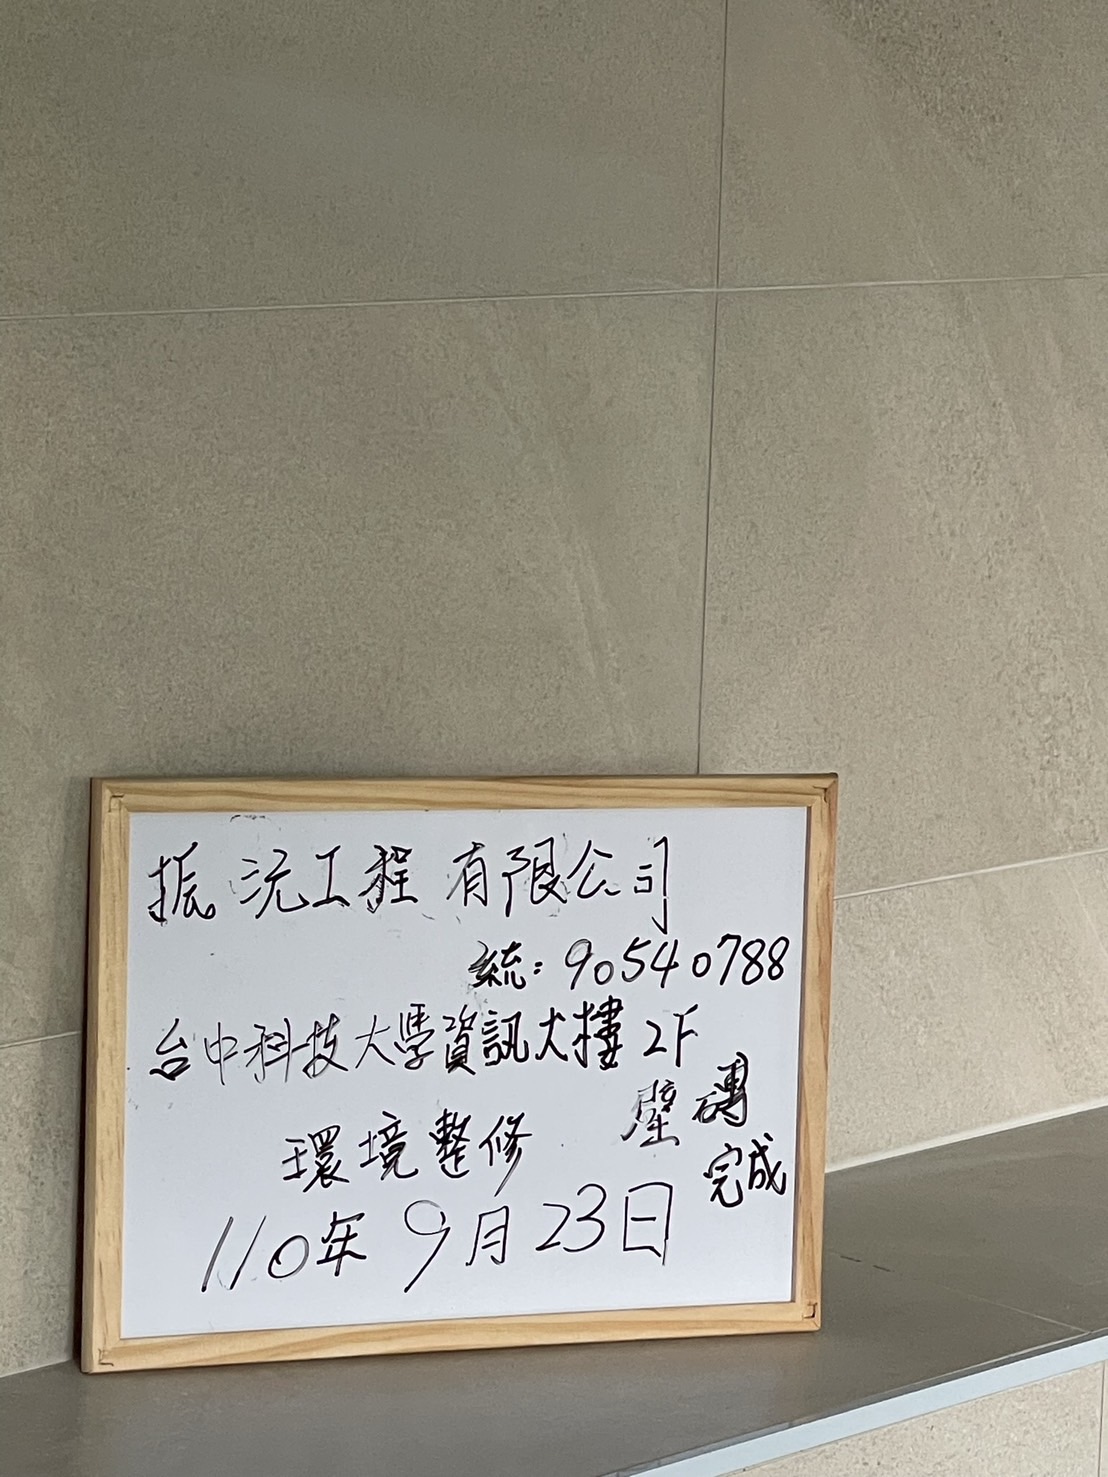 振沅工程有限公司
統：90540788
台中科技大學資訊大樓 2F
環境整修
壁磚
完成
110年 9月 23日